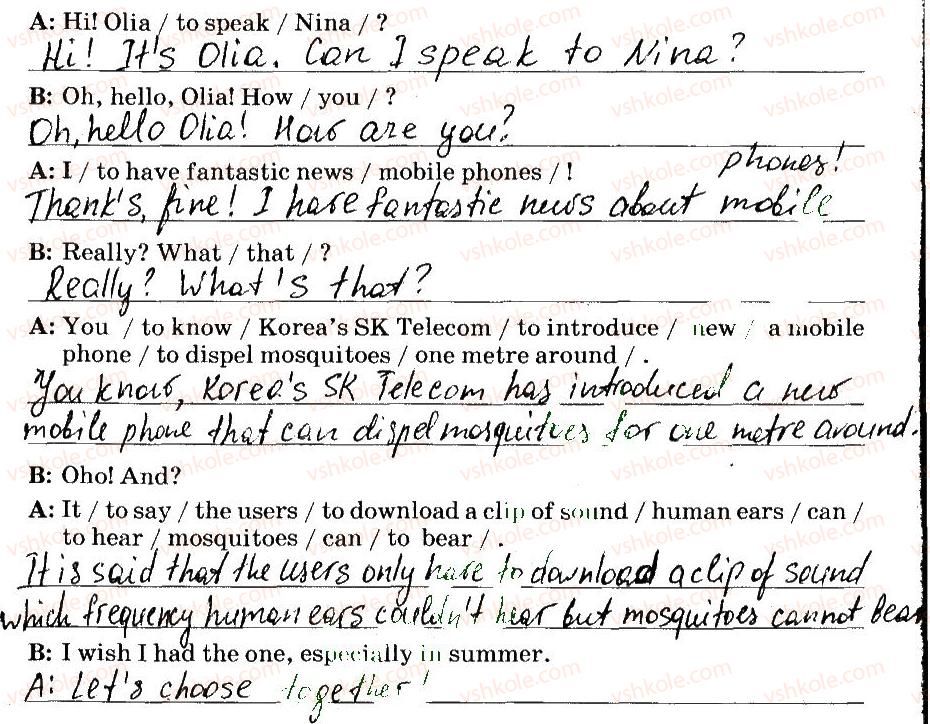 A: Hi! Olia / to speak / Nina / ?
Hi! It's Olia. Can I speak to Nina?
B: Oh, hello, Olia! How / you / ?
Oh, hello Olia! How are you?
A: I / to have fantastic news / mobile phones / !
phones!
Thank's, fine! I have fantastic news about mobile
B: Really? What / that / ?
Really? What's that?
A: You / to know / Korea's SK Telecom / to introduce / new / a mobile
phone / to dispel mosquitoes / one metre around / .
You know, Korea's SK Telecom has introduced a new
mobile phone that can dispel mosquitoes for one metre around.
B: Oho! And?
A: It / to say / the users / to download a clip of sound / human ears / can /
to hear / mosquitoes / can / to bear / .
It is said that the users only have to download a clip of sound
which frequency human ears couldn't hear but mosquitoes cannot bear
B: I wish I had the one, especially in summer.
A: Let's choose together!
vshkole.com